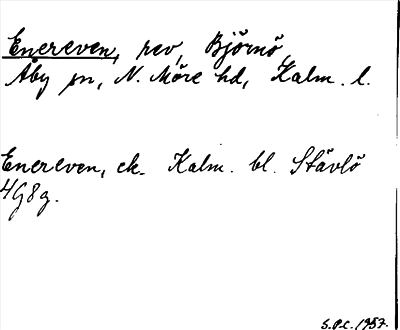 Enereven, rev, Björnö
Åby sn, N. Möre hd, Kalm. l.
Enereven, ek. Kalm. bl. Stävlö
4G8g.
S.P.C. 1957.